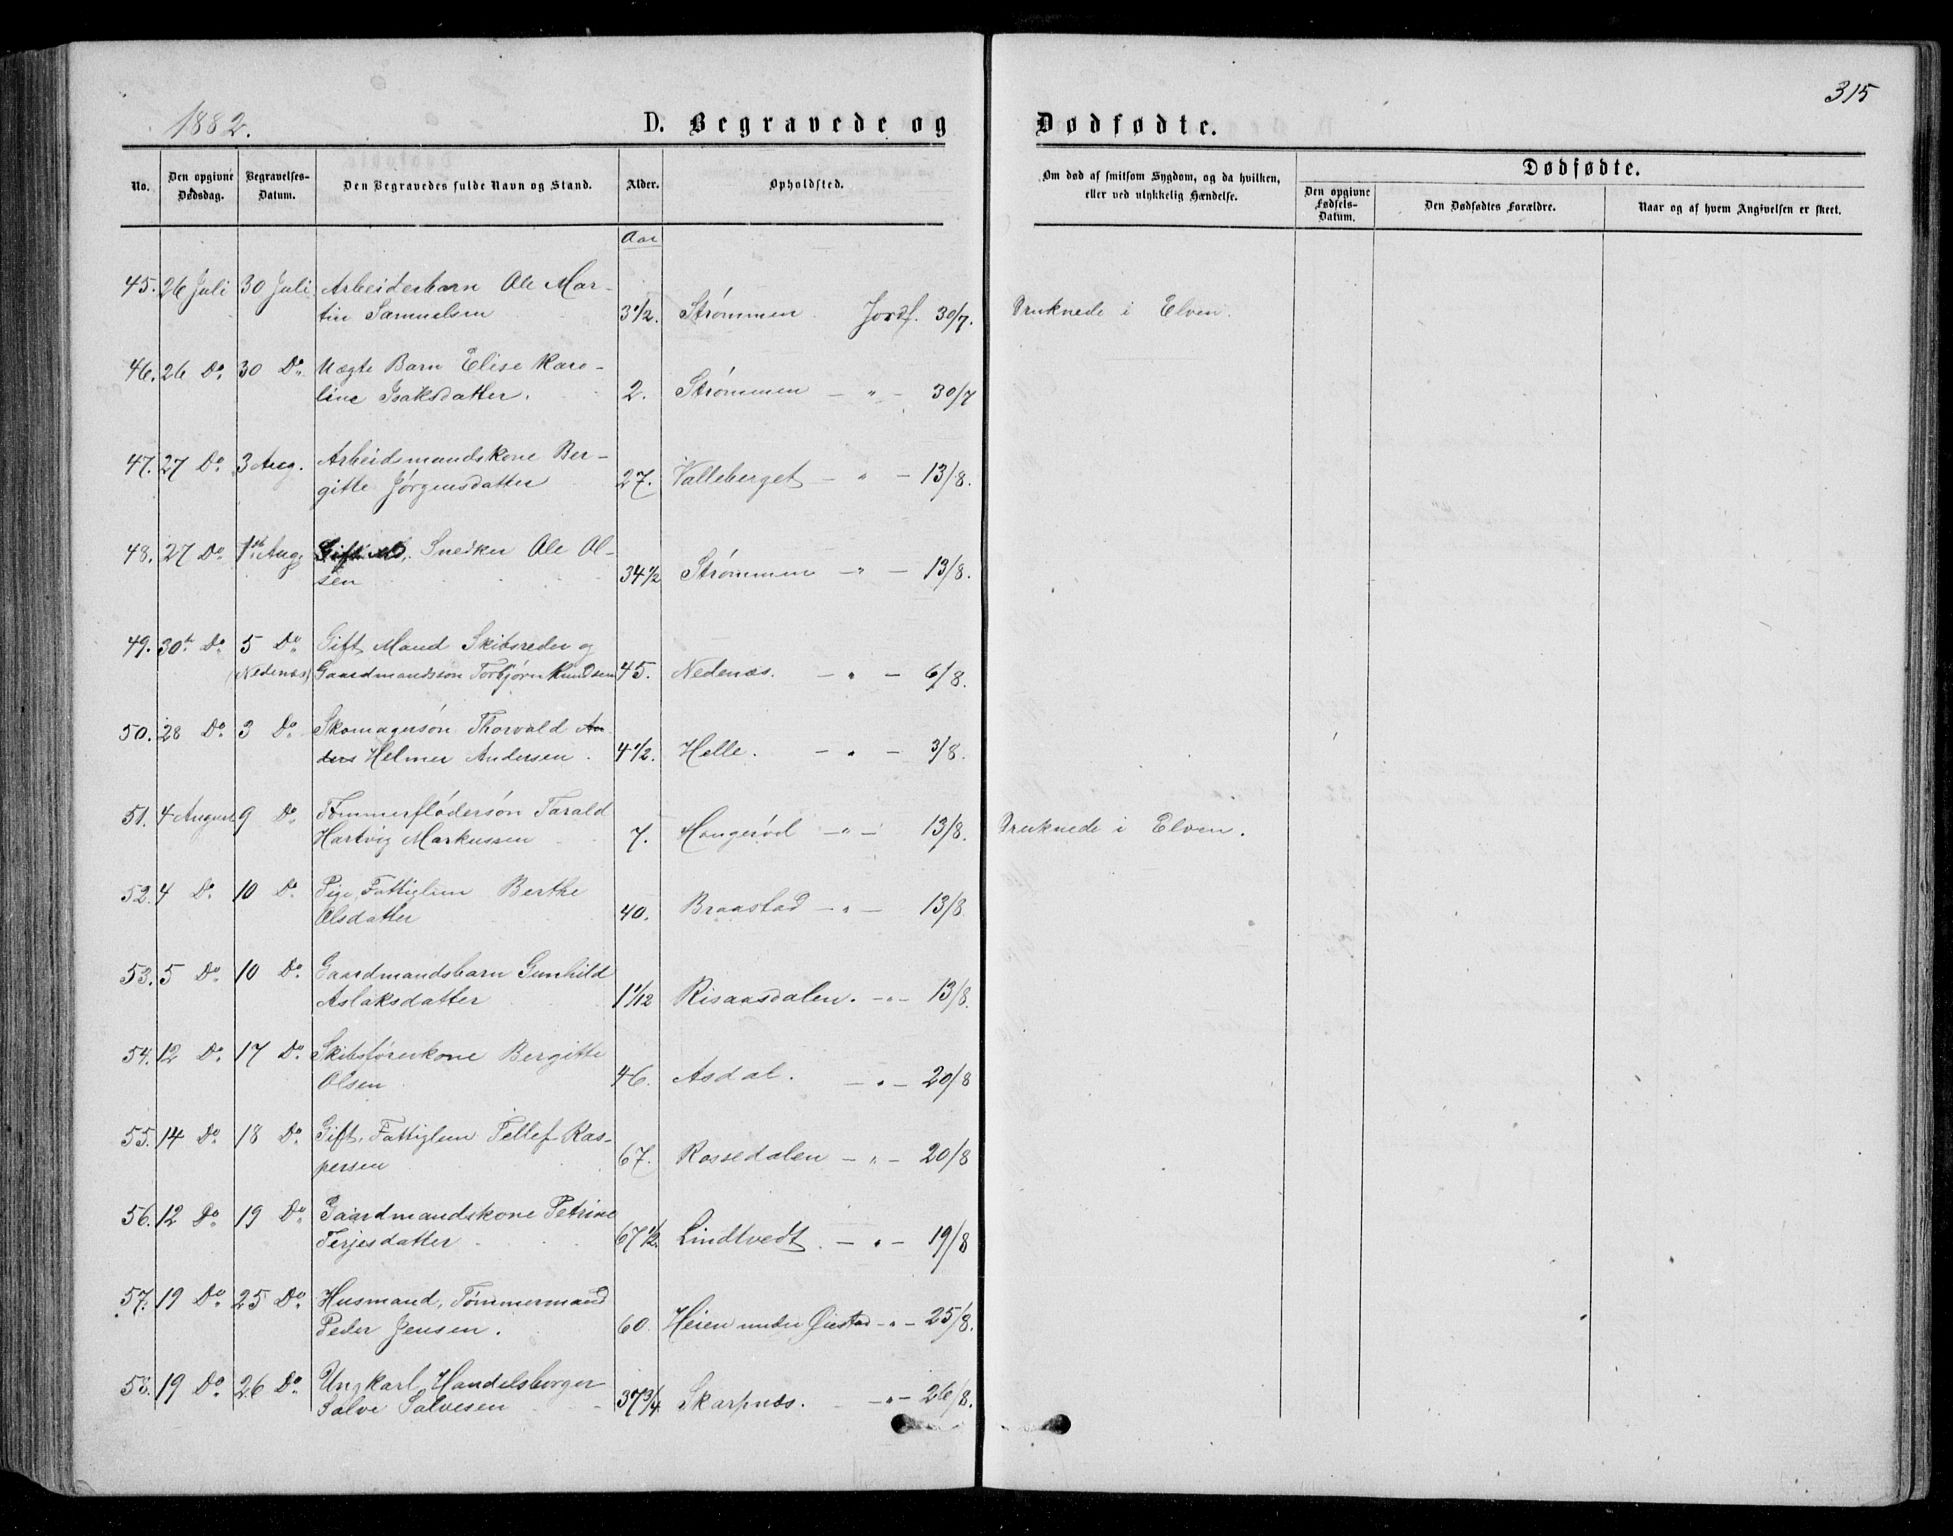 315
1882.
D. Begravede og Dødfødte.
No.
Den opgivne Dødsdag.
Begravelses-Datum.
Den Begravedes fulde Navn og Stand.
Alder.
Opholdsted.
Om død af smitsom Sygdom, og da hvilken, eller ved ulykkelig Hændelse.
Dødfødte.
Den opgivne Fødsels-Datum.
Den Dødfødtes Forældre.
Naar og af hvem Angivelsen er skeet.
Aar
45. 26 Juli 30 Juli Arbeiderbarn Ole Mar-
tin Samuelsen 3 1/2. Strømmen Jordf. 30/7. Druknede i Elven.
46. 26 Do. 30 Do. Uægte Barn Elise Karo-
line Isaksdatter. 2. Strømmen — " — 30/7
47. 27 Do. 3 Aug. Arbeidsmandskone Ber-
gitte Jørgensdatter 27. Valleberget — " — 13/8.
48. 27 Do. 1ste Aug. Snedker Ole Ol-
sen 34 1/2 Strømmen — " — 13/8.
49. 30te Do. 5 Do. Gift Mand Skibsreder og
(Nedenæs) Gaardmandssøn Torbjørn Knudsen 45. Nedenæs. — " — 6/8.
50. 28 Do. 3 Do. Skomagersøn Thorvald An-
ders Helmer Andersen. 4 1/2. Helle. — " — 3/8.
51. 4 August 9 Do. Tømmerflødersøn Tarald
Hartvig Markussen 7. Mangerød — " — 13/8. Druknede i Elven.
52. 4 Do. 10 Do. Pige, Fattiglem Berthe
Olsdatter 40. Braastad — " — 13/8
53. 5 Do. 10 Do. Gaardmandsbarn Gunhild
Aslaksdatter 1 1/12 Risaasdalen. — " — 13/8.
54. 12 Do. 17 Do. Skibsførerkone Bergitte
Olsen 46. Asdal. — " — 20/8
55. 14 Do. 18 Do. Gift, Fattiglem Tellef Kas-
persen 67. Rossedalen — " — 20/8
56. 12 Do. 19 Do. Gaardmandskone Petrine
Terjesdatter 67 1/2. Lindtvedt. — " — 19/8
57. 19 Do. 25 Do. Husmand, Tømmermand
Peder Jensen. 60. Heien under Øiestad — " — 25/8.
58. 19 Do. 26 Do. Ungkarl, Handelsborger
Salve Salvesen 37 3/4 Skarpnæs. — " — 26/8.